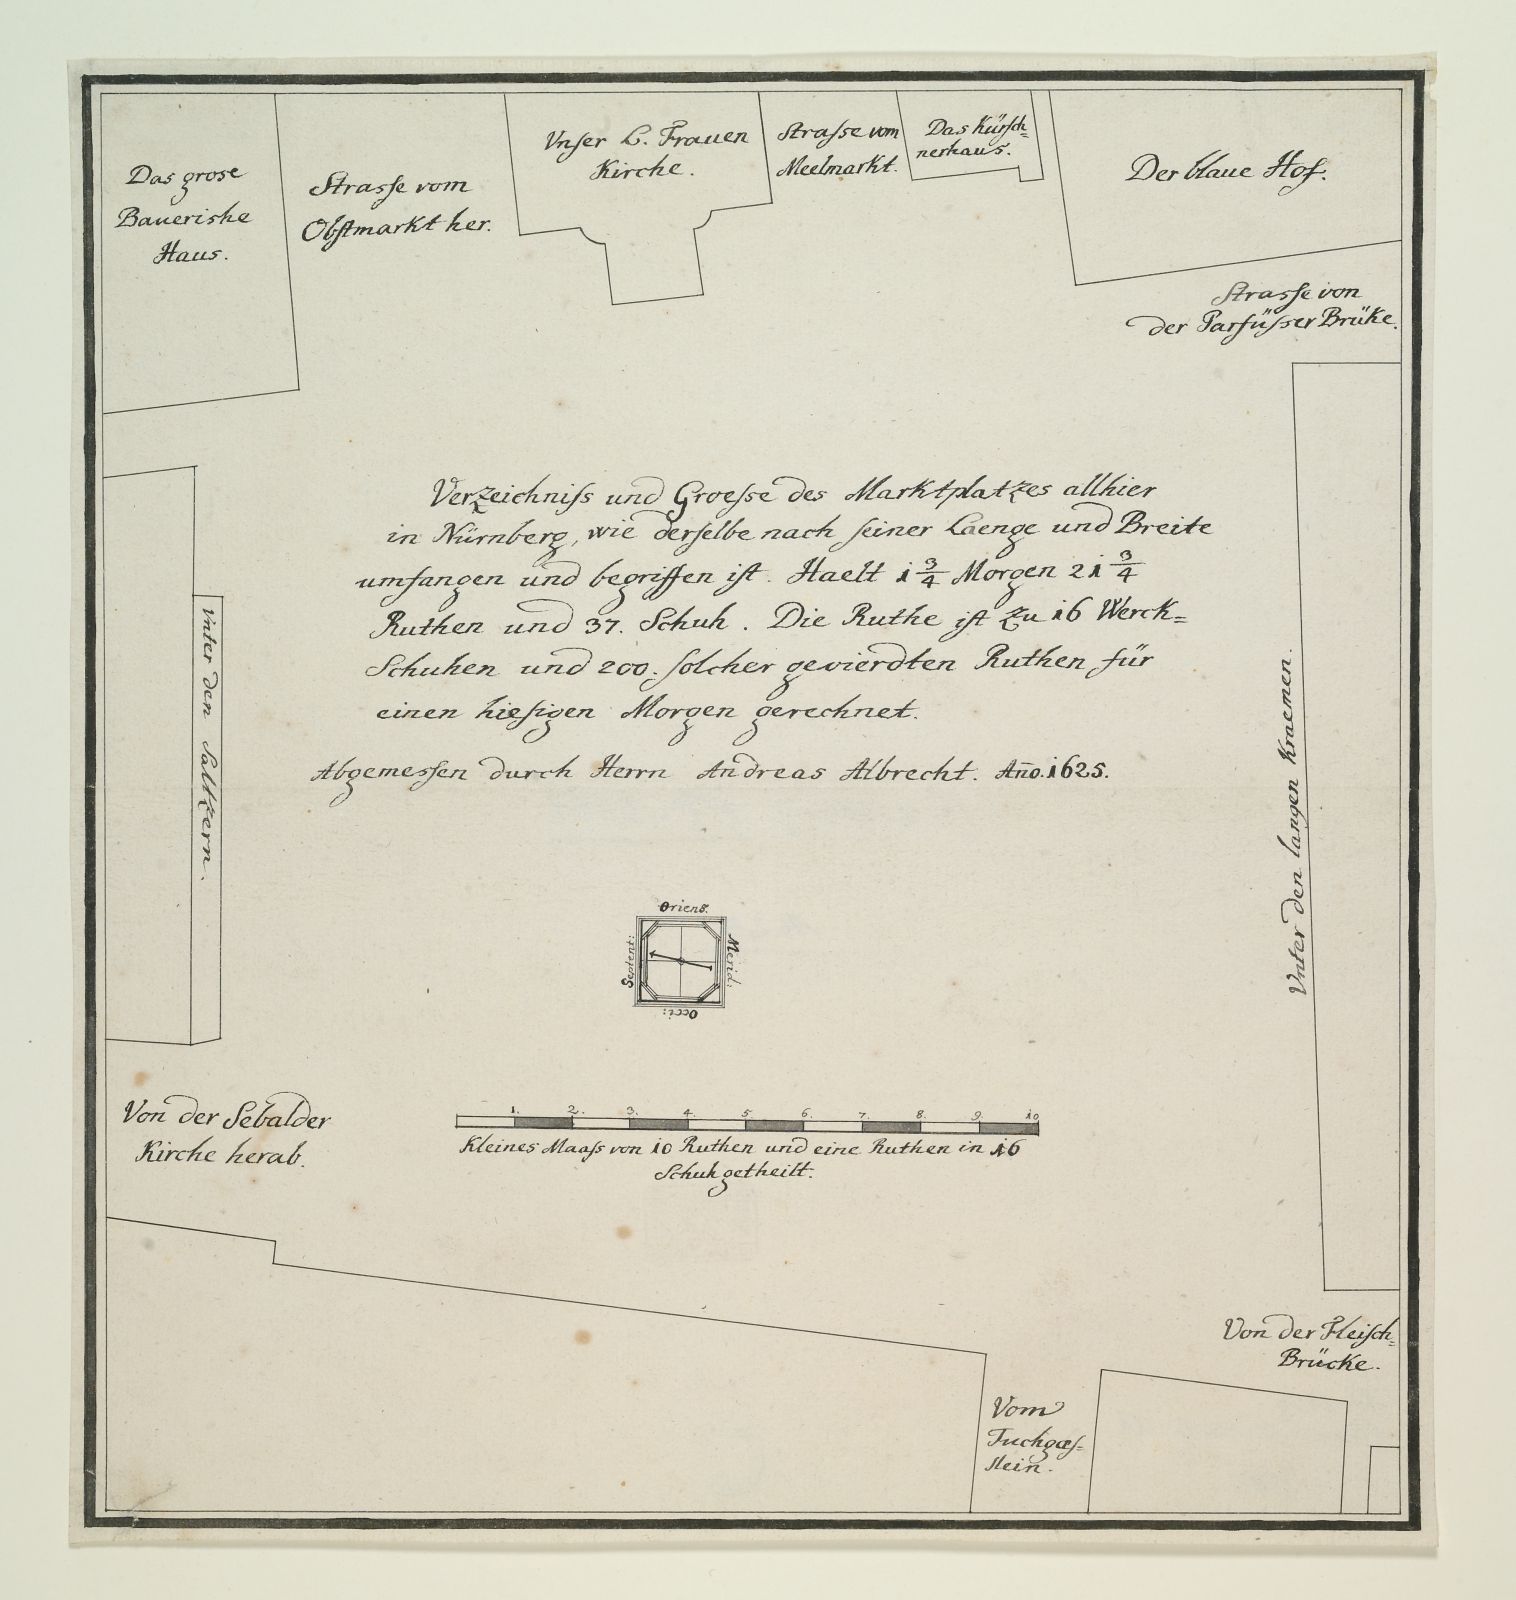 Das grose
Bauerishe
Haus.
Strasse vom
Obstmarkt her.
Vnser L. Frauen
Kirche.
Strasse vom
Meelmarkt.
Das Kürsch=
nerhaus.
Der blaue Hof.
Strasse von
der Parfüsser Brüke.
Verzeichniss und Groesse des Marktplatzes allhier
in Nürnberg, wie derselbe nach seiner Laenge und Breite
umfangen und begriffen ist. Haelt 1 3/4 Morgen 21 3/4
Ruthen und 37. Schuh. Die Ruthe ist zu 16 Werck=
Schuhen und 200. solcher gevierdten Ruthen für
einen hiesigen Morgen gerechnet.
Abgemessen durch Herrn Andreas Albrecht. Año. 1625.
Vnter den Saltzern.
Vnter den langen Kraemen.
Oriens.
Septent:
Merid:
Occi:
Von der Sebalder
Kirche herab.
1. 2. 3. 4. 5. 6. 7. 8. 9. 10
Kleines Maass von 10 Ruthen und eine Ruthen in 16
Schuh getheilt.
Von der Fleisch=
Brücke.
Vom
Tuchgæs=
slein.